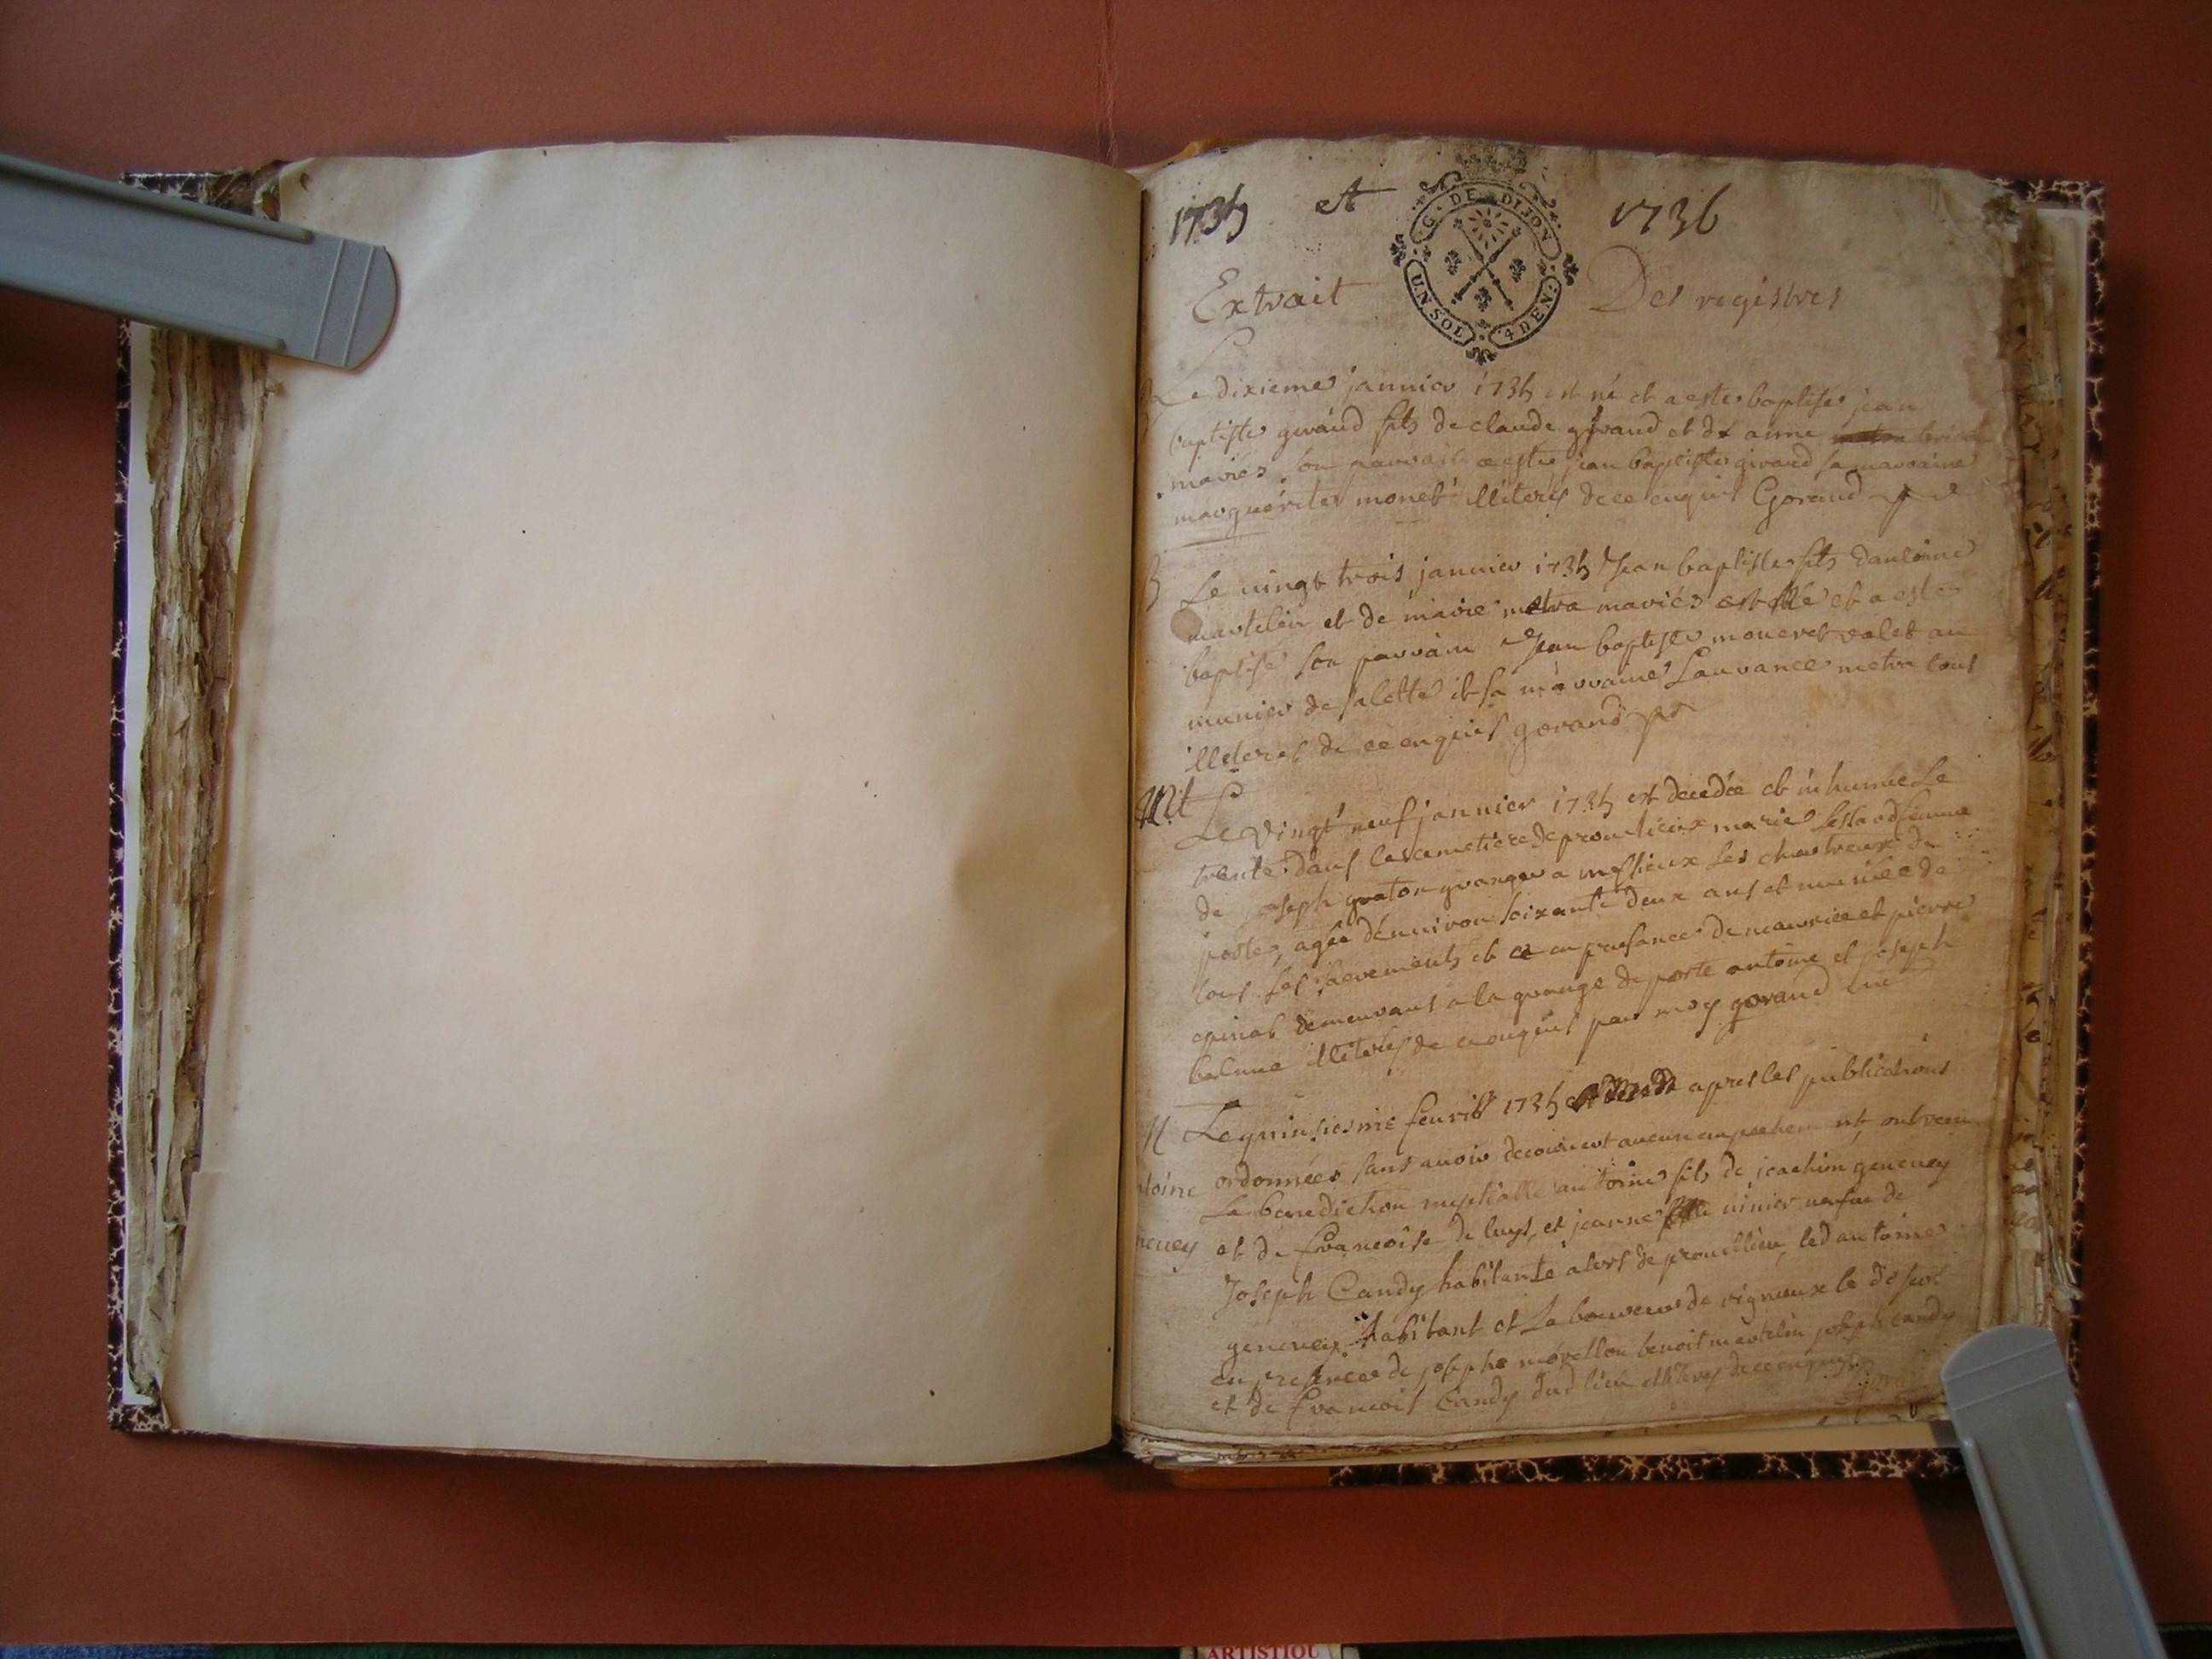 1735 et 1736
G. DE DIJON
UN SOL
4 DEN.
Extrait Des registres
B Le dixieme januier 1735 est né et a este baptisé jean
baptiste giraud fils de claude giraud et de anne
mariés son parrain a esté jean baptiste giraud sa marraine
marguérite monet illiterés de ce enquis Gorand
B Le uingt trois januier 1735 Jean baptiste fils dantoine
martelin et de marie metra mariés est né et a este
baptisé son parrain Jean baptiste moneret valet au
munier de salette et sa marraine Laurance metra tous
illeteres de ce enquis gorand
Mt
Le vingt neuf januier 1735 est decedée et inhumée Le
trente dans le cemetiere de proulieux marie femme
de joseph graton granger a messieux les chartreux de
porte, agée dénuiron soixante deux ans et munie de
tous les sacrements et ce en presance de maurice et pierre
epinat demeurans a la grange de porte antoine et joseph
belme illiterés de ce enquis par moy gorand curé
M Le quinsiesme feurier 1735 apres les publications
ordonnées sans auoir decouuert aucun empechement ont receu
ntoine
La benediction nuptialle antoine fils de joachim geneuey
neuey et de francoise de luys, et jeanne uinier uefue de
Joseph Candy habitante alors de proulieu, led antoine
geneuey habitant et Laboureur de vigneux le de sus
en presence de josephe morellon benoit martelin joseph candy
et de francois Candy dud lieu illiterés de ce enquis
ARTISTIQU